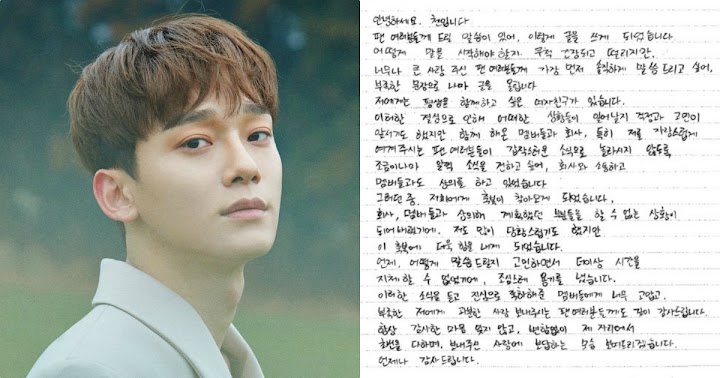 안녕하세요. 첸입니다
팬 여러분들께 드릴 말씀이 있어, 이렇게 글을 쓰게 되었습니다
어떻게 말을 시작해야 할지 무척 긴장되고 떨리지만,
너무나 큰 사랑 주신 팬 여러분들께 가장 먼저 솔직하게 말씀드리고 싶어,
부족한 문장으로나마 글을 올립니다
저에게는 평생을 함께하고 싶은 여자친구가 있습니다.
이러한 결심으로 인해 어떠한 상황들이 일어날지 걱정과 고민이
앞서기도 했지만 함께 해온 멤버들과 회사, 특히 저를 자랑스럽게
여겨주시는 팬 여러분들이 갑작스러운 소식으로 놀라시지 않도록
조금이나마 일찍 소식을 전하고 싶어, 회사와 소통하고
멤버들과도 상의를 하고 있었습니다
그러던 중, 저희에게 축복이 찾아오게 되었습니다,
회사, 멤버들과 상의해 계획했던 부분들을 할 수 없는 상황이
되어버렸기에. 저도 많이 당황스럽기도 했지만
이 축복에 더욱 힘을 내게 되었습니다.
언제, 어떻게 말씀드릴지 고민하면서 더이상 시간을
지체 할 수 없었기에, 조심스레 용기를 냈습니다.
이러한 소식을 듣고 진심으로 축하해준 멤버들에게 너무 고맙고.
부족한 저에게 과분한 사랑 보내주시는 팬 여러분들께도 깊이 감사드립니다.
항상 감사한 마음 잊지 않고, 변함없이 제 자리에서
최선을 다하며, 보내주신 사랑에 보답하는 모습 보여드리겠습니다.
언제나 감사드립니다.